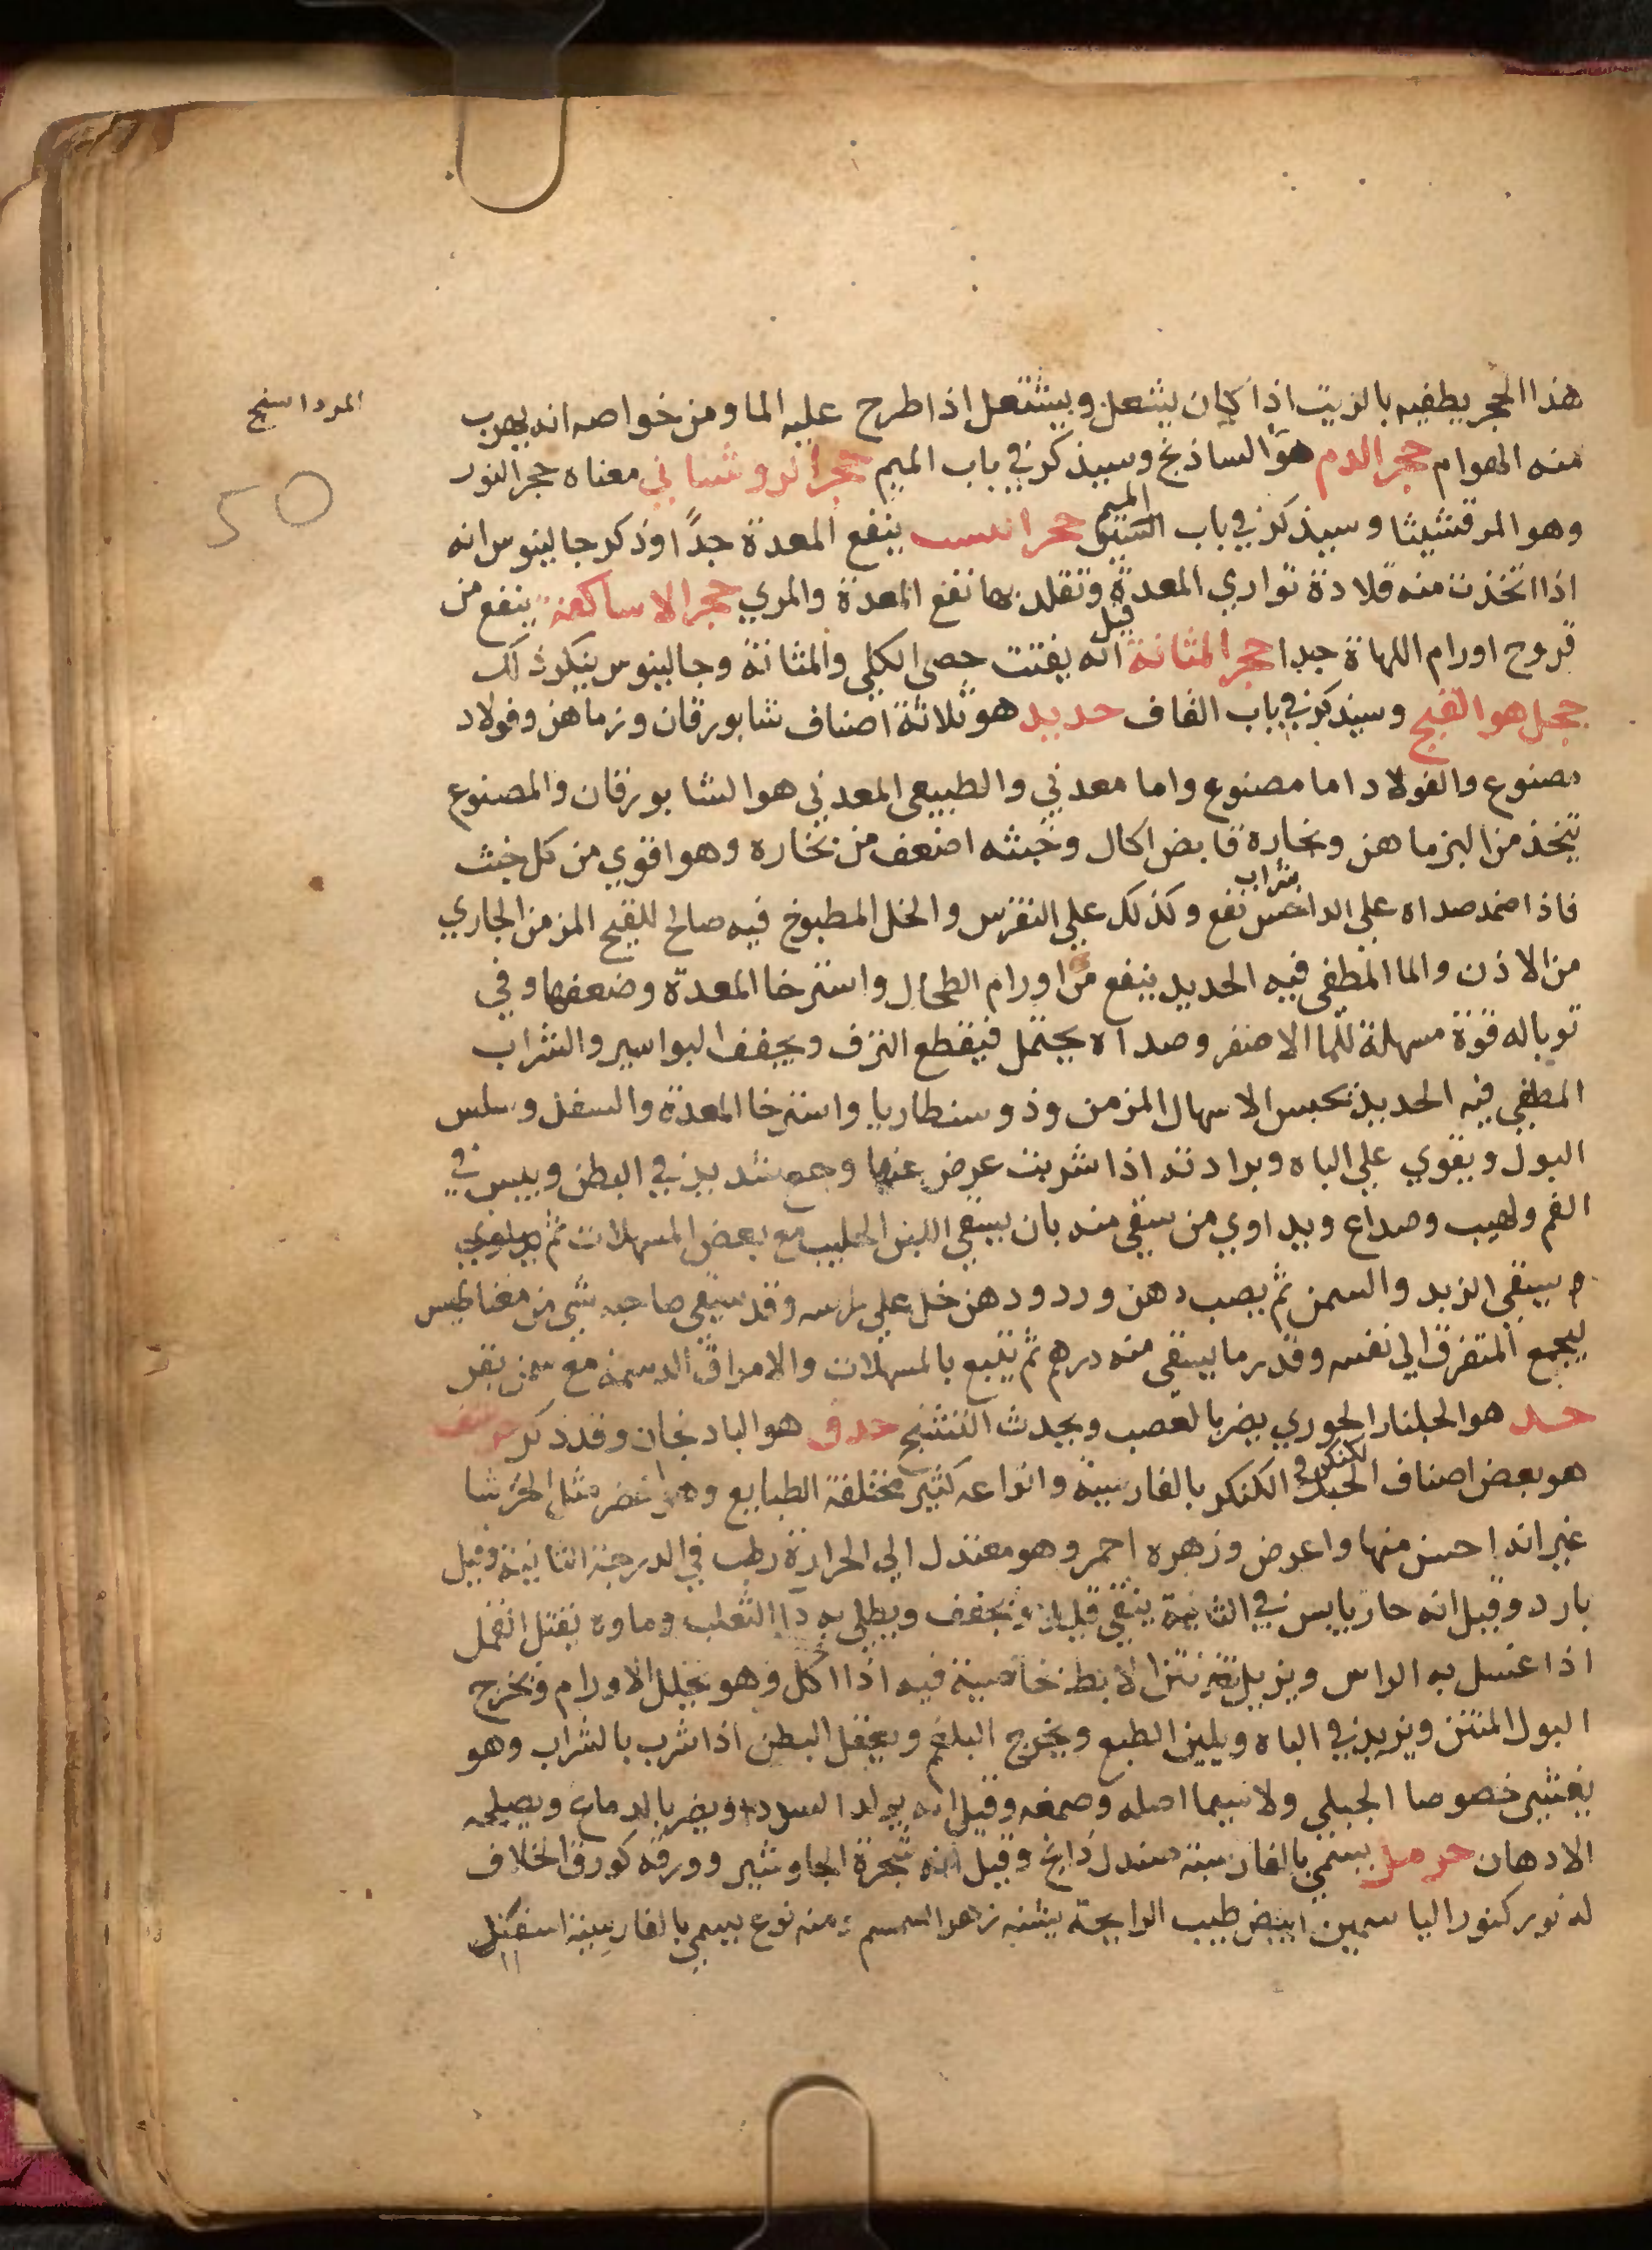 المرداسنج
50
هذا الحجر يطفيه بالزيت اذا كان يشعل ويشتعل اذا طرح عليه الما ومن خواصه انه يهرب
منه الهوام حجر الدم هو الساذنج وسيذكر في باب الميم حجر انروشناني معناه حجر النور
وهو المرقشيثا وسيذكر في باب الميم حجر ينفع المعدة جدًا وذكر جالينوس انه
اذا اتخذت منه قلادة تواري المعدة وتقلد بها نفع المعدة والمري حجر الاساكفه ينفع من
قروح اورام اللهاة جدا حجر المثانة قيل انه يفتت حصى الكلي والمثانة وجالينوس ينكر ذلك
حجل هو القبج وسيذكر في باب القاف حديد هو ثلاثة اصناف شابورقان ونرماهن وفولاد
مصنوع والفولاد اما مصنوع واما معدني والطبيعى المعدني هو الشابورقان والمصنوع
يتخذ من النرماهن ونحاره قابض اكال وخبثه اضعف من نحاره وهو اقوي من كل خبث
فاذا ضمد صداه علي الداحس بشراب نفع وكذلك علي النقرس والخل المطبوخ فيه صالح للقيح المزمن الجاري
من الاذن والما المطفى فيه الحديد ينفع من اورام الطحال واسترخا المعدة وضعفها وفي
توباله قوة مسهلة للما الاصفر وصداه يحتمل فيقطع النزف ويجفف البواسير والشراب
المطفي فيه الحديد يحبس الاسهال المزمن وذوسنطاريا واسترخا المعدة والسفل وسلس
البول ويقوي علي الباه وبرادته اذا شربت عرض عنها وجع شديد في البطن ويبس في
الفم ولهيب وصداع ويداوي من سقى منه بان يسقي اللبن الحليب مع بعض المسهلات ثم
يسقي الزبد والسمن ثم يصب دهن ورد ودهن خل علي راسه وقد سقى صاحبه شي من مغناطيس
ليجمع المتفرق الي نفسه وقدر ما يسقى منه درهم ثم يتبع بالمسهلات والامراق الدسمة مع سمن بقر
هو الجلنار الجوري يضر بالعصب ويحدث التشنج حدق هو البادنجان وقد ذكر حرشف
هو بعض اصناف الكنكر بالفارسية وانواعه كثير مختلفة الطبايع وهو اخضر مثل الخرشا
غير انه احسن منها واعرض وزهره احمر وهو معتدل الي الحرارة رطب في الدرجة الثانية وقيل
بارد وقيل انه حار يابس في الثانية ينقي قليلا ويجفف ويطلي به دا الثعلب وماوه يقتل القمل
اذا غسل به الراس ويزيل نتن الابط خاصية فيه اذا اكل وهو يحلل الاورام ويخرج
البول المنتن ويزيد في الباه ويلين الطبع ويخرج البلغم ويعقل البطن اذا شرب بالشراب وهو
يغثي خصوصا الجبلي ولا سيما اصله وصمغه وقيل انه يولد السودا ويضر بالدماغ ويصلحه
الادهان حرمل يسمى بالفارسية صندل وقيل انه شجرة الجاوشير وورقه كورق الخلاف
له نور كنور الياسمين ابيض طيب الرايحة يشبه زهر السمسم ومنه نوع يسمي بالفارسية